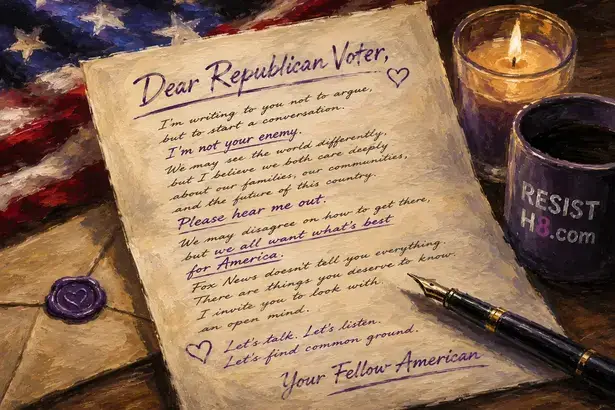 Dear Republican Voter,
I'm writing to you not to argue,
but to start a conversation.
I'm not your enemy.
We may see the world differently,
but I believe we both care deeply
about our families, our communities,
and the future of this country.
Please hear me out.
We may disagree on how to get there,
but we all want what's best
for America.
Fox News doesn't tell you everything.
There are things you deserve to know.
I invite you to look with
an open mind.
Let's talk. Let's listen.
Let's find common ground.
Your Fellow American
RESIST
H8.com